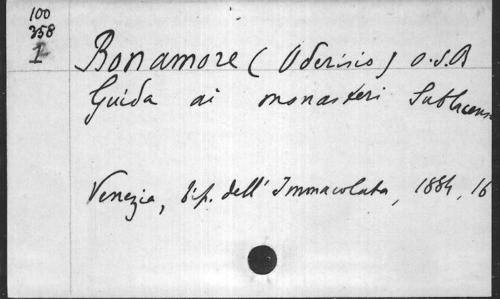 100
358
I
Bonamore (Oderisio) O.S.B
Guida ai monasteri Sublacens
Venezia, tip. dell'Immacolata, 1884, 16